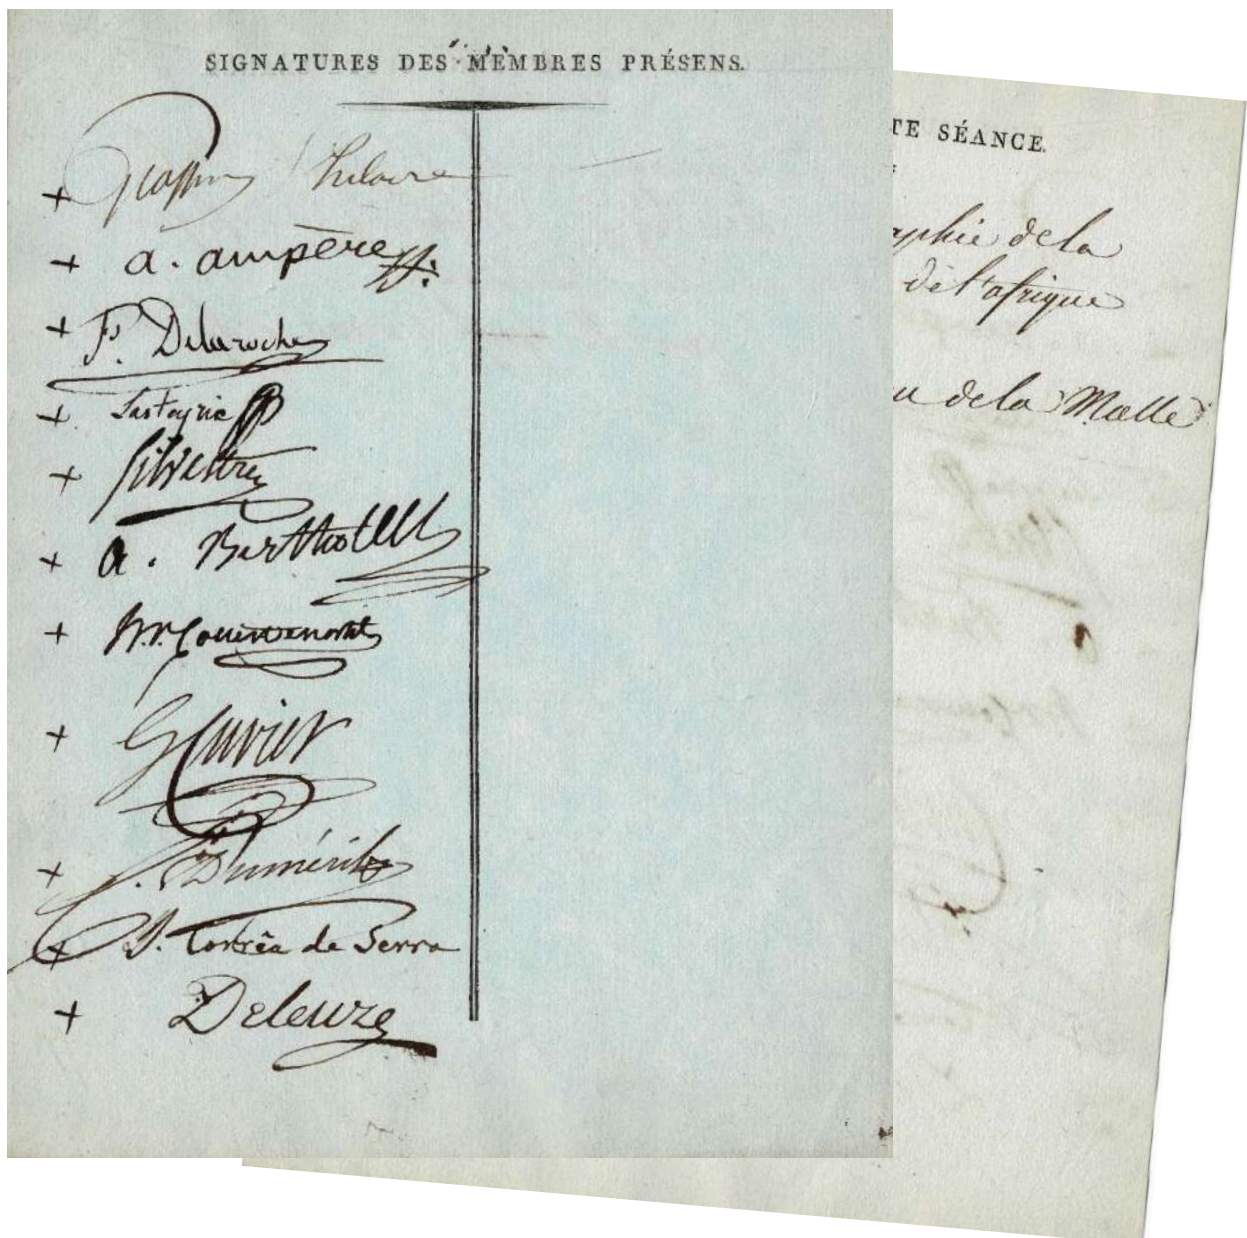 SIGNATURES DES MEMBRES PRÉSENS.
Geoffroy St hilaire
+
a. ampère
+
F. Delaroche
+
Lasteyrie
+
Silvestre
+
a. Berthollet
+
+
G Cuvier
+
C. Duméril
+
J. Corrêa de Serra
+
Deleuze
+
TE SÉANCE.
aphie de la
de l'afrique
u de la Malle